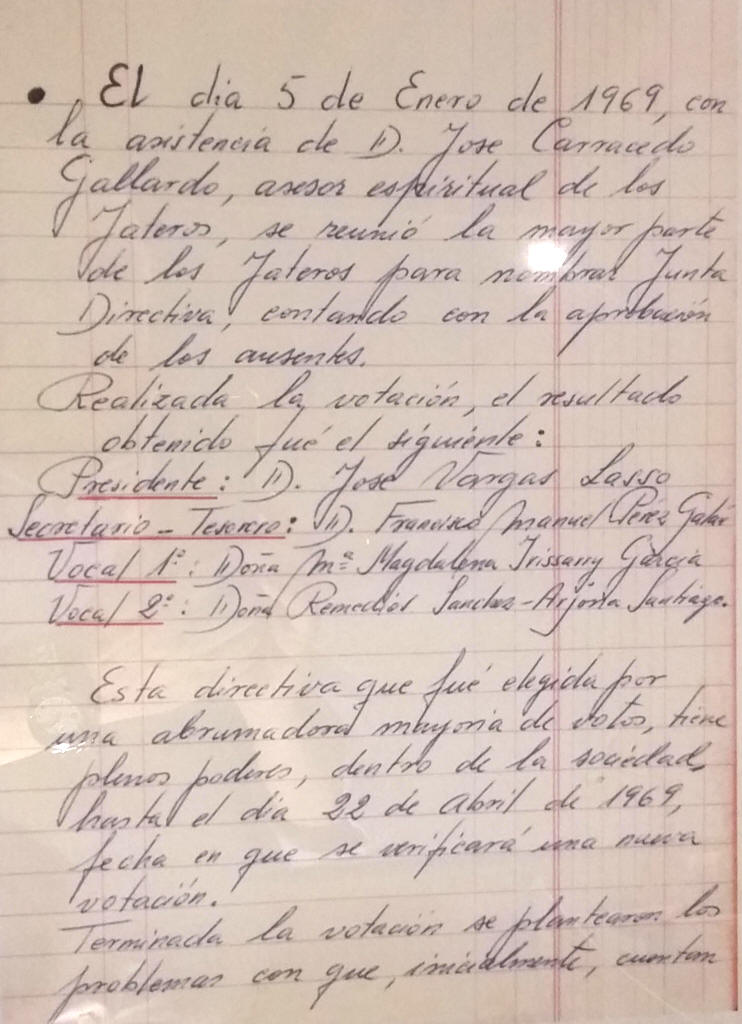 • El dia 5 de Enero de 1969, con
la asistencia de D. Jose Carracedo
Gallardo, asesor espiritual de los
Jateros, se reunió la mayor parte
de los Jateros para nombrar Junta
Directiva, contando con la aprobación
de los ausentes.
Realizada la votación, el resultado
obtenido fué el siguiente:
Presidente: D. Jose Vargas Lasso
Secretario - Tesorero: D. Francisco Manuel Pérez Galán
Vocal 1º: Doña Mª Magdalena Irissarry Garcia
Vocal 2º: Doña Remedios Sanchez-Arjona Santiago.
Esta directiva que fué elegida por
una abrumadora mayoria de votos, tiene
plenos poderes, dentro de la sociedad,
hasta el dia 22 de Abril de 1969,
fecha en que se verificará una nueva
votación.
Terminada la votación se plantearon los
problemas con que, inicialmente, cuentan